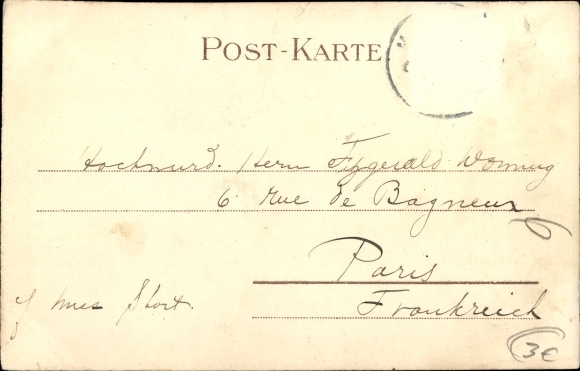 POST-KARTE
Hochwürd. Herrn Fitzgerald
6. rue de Bagneux
Paris
Frankreich
3€